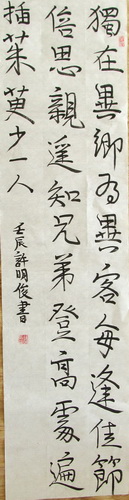 獨在異鄉為異客每逢佳節
倍思親遥知兄弟登高處遍
插茱萸少一人
壬辰許明俊書